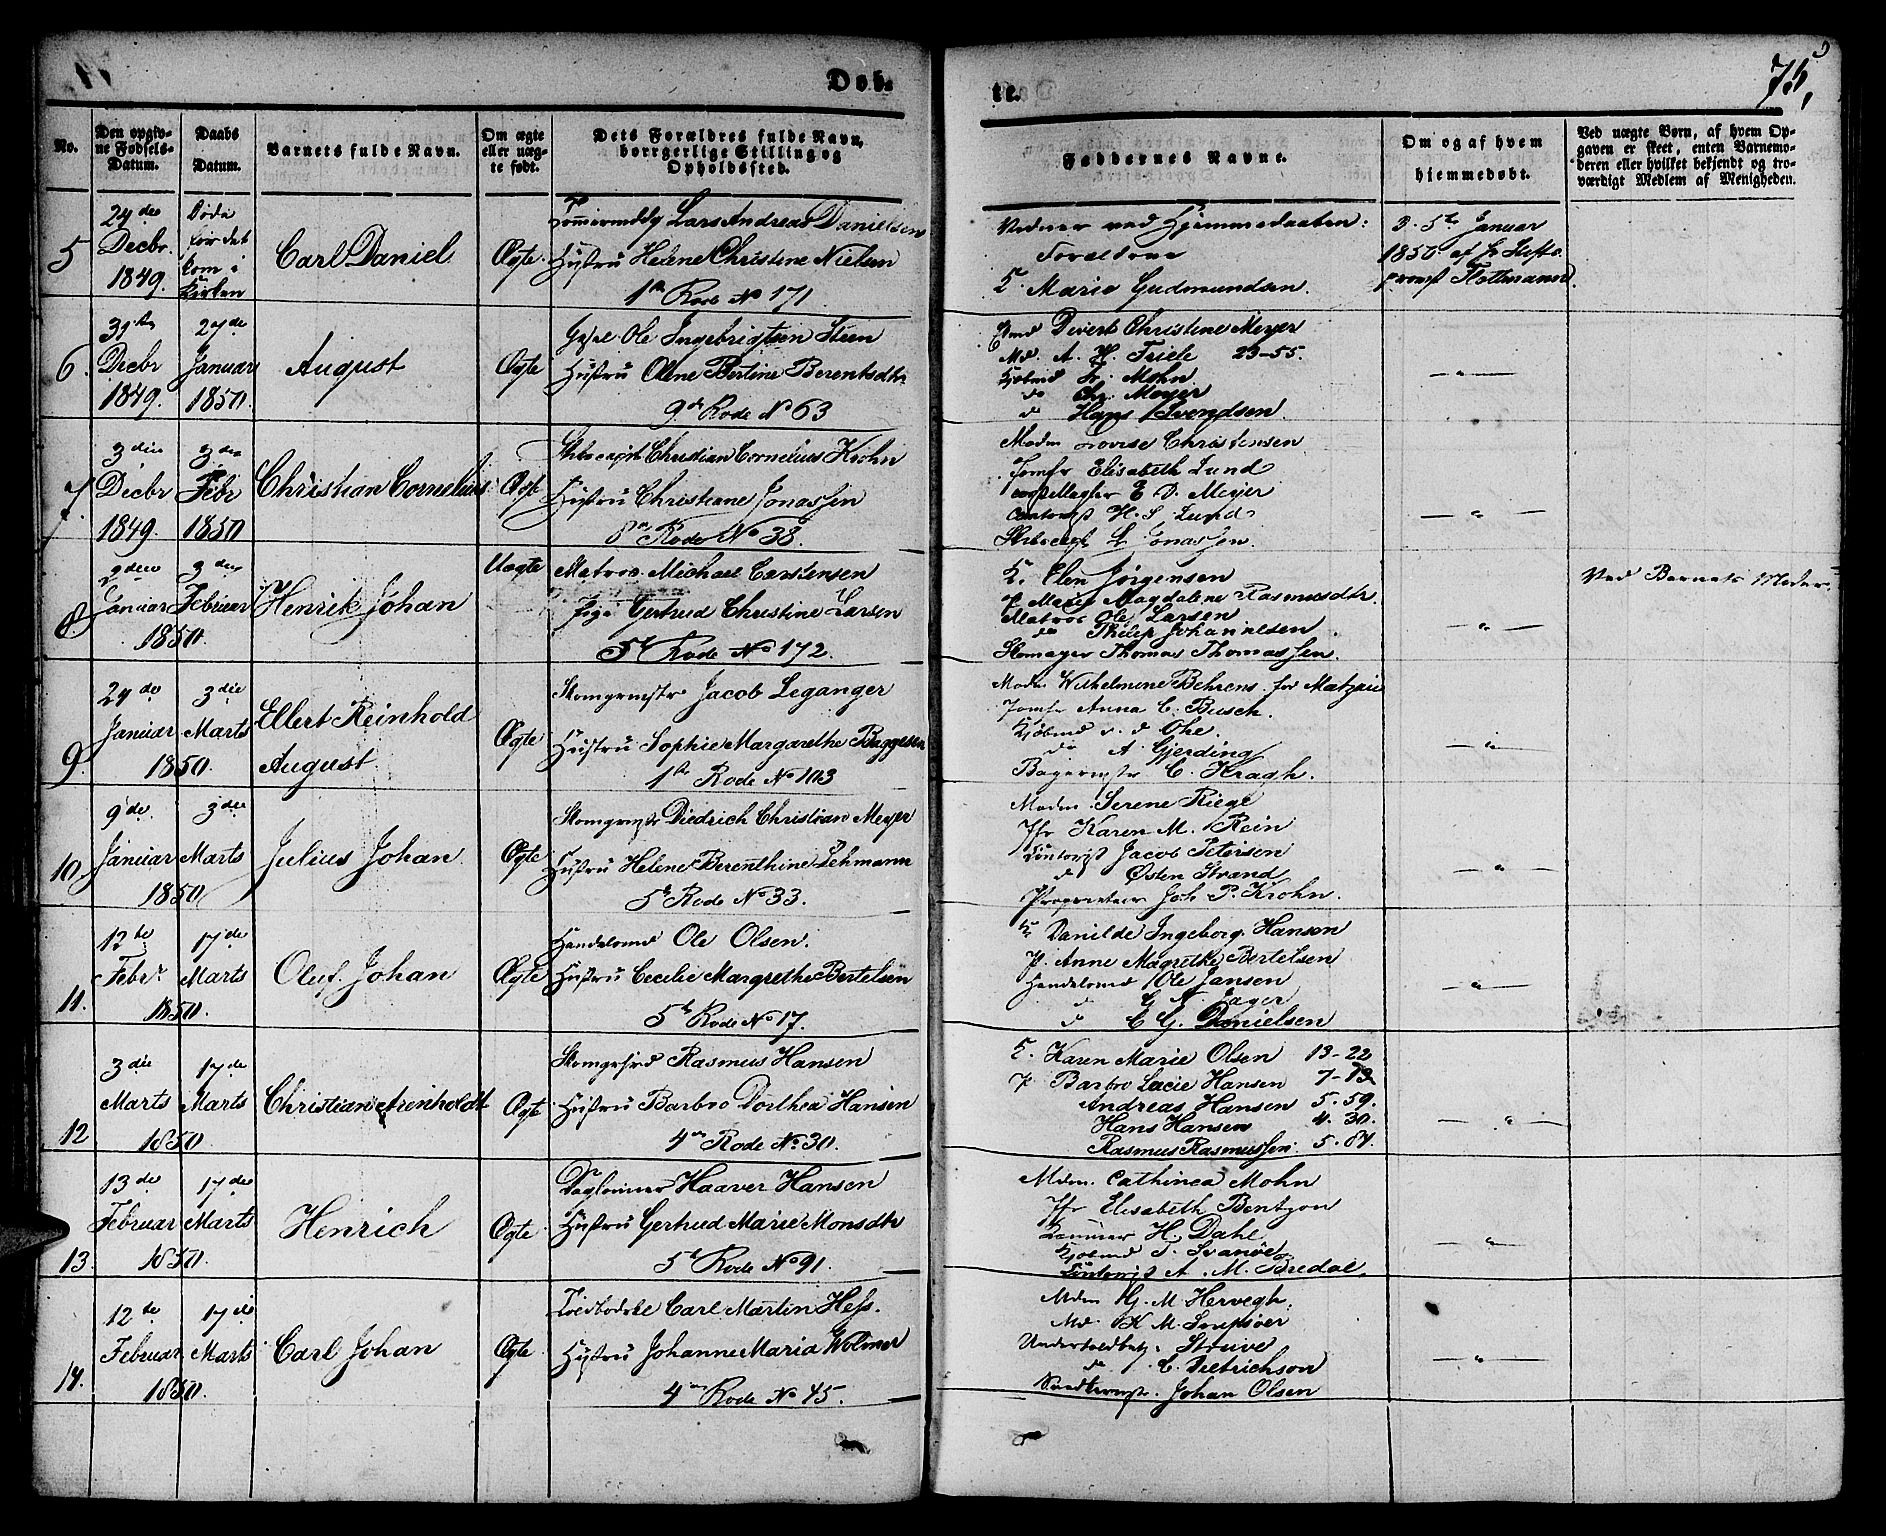 Døb-
te.
75,
No.
Den opgiv-
ne Fødsels-
Datum.
Daabs
Datum.
Barnets fulde Navn.
Om ægte
eller uæg-
te født.
Dets Forældres fulde Navn,
borrgerlige Stilling og
Opholdssted.
Faddernes Navne.
Om og af hvem
hjemmedøbt.
Ved uægte Børn, af hvem Op-
gaven er skeet, enten Barnemo-
deren eller hvilket bekjendt og tro-
værdigt Medlem af Menigheden.
5
24de
Decbr
1849.
Døde
før det
kom i
Kirken
Carl Daniel
Ægte.
Lars Andreas Danielsen
Hustru Helene Christine Nielsen
1te Rode No 171
Vidner ved Hjemmedaaben:
Forældrene
K. Marie Gudmundsen.
D. 5te Januar
1850 af Hr Stifts
provst
6.
Decbr
1849.
27de
Januar
1850.
August
Ægte
Ole Ingebrigtsen Steen
Hustru Olene Bertine Berentsdtr
9de Rode No 63
Divert Christine Meyer
Md. A. H. Friele 23-55.
Kjøbmd Mohn
do Chr. Meyer
do Hans Svendsen
— " —
7.
3die
Decbr
1849.
3die
Febr
1850
Christian Cornelius
Ægte
Christian Cornelius Krohn
Hustru Christiane Jonassen
8de Rode No 38.
Madm Lovise Christensen
Jomfr Elisabeth Lund
E. D. Meyer
Contorist H. S. Lund
Jonassen.
— " —
8
2den
Januar
1850.
3die
Februar
Henrik Johan
Uægte
Matros Michael Carstensen
Pige Gertrud Christine Larsen
5te Rode No 172.
K. Elen Jørgensen
P. Magdalene Rasmusdtr.
Matros Ole Larsen
do Philip Johannesen
Skomager Thomas Thomassen.
— " —
Ved Barnets Moder
9.
24de
Januar
1850.
3die
Marts
Ellert Reinhold
August
Ægte
Skomgrmstr Jacob Leganger
Hustru Sophie Margarethe Baggesen
1te Rode No 103
Madm Wilhelmine Behrens
Jomfr Anna C. Busch.
Kjøbmd v. d. Ohe.
do A. Gjerding
Bagermstr C. Kragh.
— " —
10.
9de
Januar
1850
3die
Marts
Julius Johan
Ægte
Skomgrmstr Diedrich Christian Meyer
Hustru Helene Berenthine Lehmann
5te Rode No 33.
Madm. Serene Riege
Jfr Karen M. Rein
Contorist Jacob Petersen
do Østen Strand
Proprietair Joh P. Krohn.
— " —
11.
12te
Febr.
1850.
17de
Marts
Oluf Johan
Ægte
Handelsmd Ole Olsen.
Hustru Cecilie Margrethe Bertelsen
5te Rode No 17.
K. Danilde Ingeborg Hansen
P. Anne Magrethe Bertelsen
Handelsmd Ole Jansen
do G A Jager
do C G. Danielsen
— " —
12
3die
Marts
1850.
17de
Marts
Christian Arenholdt
Ægte
Skomgrsvd Rasmus Hansen
Hustru Barbro Dorthea Hansen
4de Rode No 30.
K. Karen Marie Olsen 13-22
P. Barbro Lucie Hansen 7-13
Andreas Hansen 5.59.
Hans Hansen 4.30.
Rasmus Rasmussen 5.87.
— " —
13.
13de
Februar
1850.
17de
Marts
Henrich
Ægte.
Dagleiner Haaver Hansen
Hustru Gertrud Marie Monsdtr
5te Rode No 91.
Mdm. Cathinca Mohn
Jfr Elisabeth Bentzon
H. Dahl
Kjøbmd T. Svanøe
Contorist A. M. Bredal.
— " —
14.
12te
Februar
1850.
17de
Marts
Carl Johan
Ægte.
Carl Martin Hess.
Hustru Johanne Maria Wolmer
4de Rode No 45.
Mdm Hj. M. Hervegh.
Md. K M.
Undertoldbetj. Struve
do C. Dietrichson
Johan Olsen
— " —